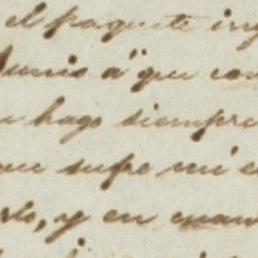 el paquete ing
Junio á que con
hago siempre
que supe mi e
rlo, y en cuan